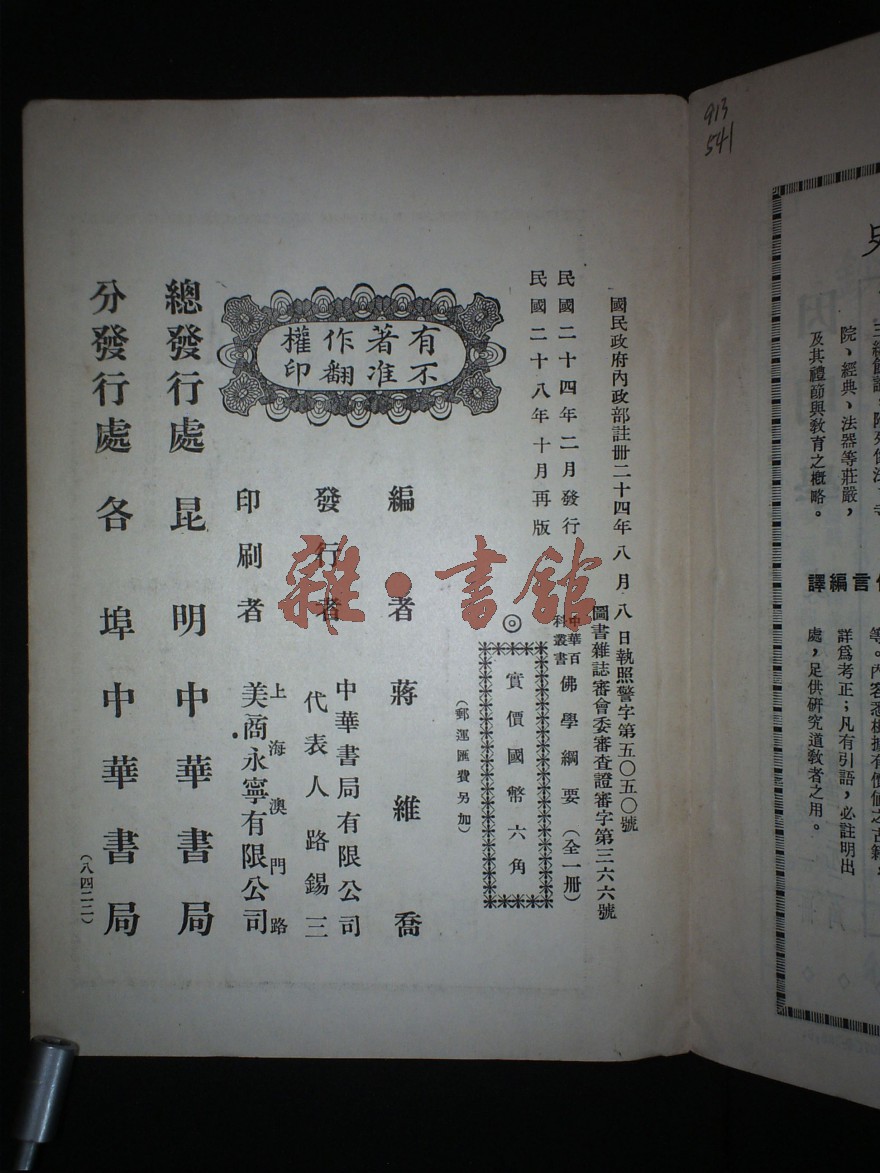 913
541
及其禮節與教育之概略。
院、經典、法器等莊嚴，
言編譯
等。內容悉根據有價值之古籍，
詳爲考正；凡有引語，必註明出
處，足供研究道教者之用。
國民政府內政部註冊二十四年八月八日執照警字第五〇五〇號
圖書雜誌審會委審查證審字第三六六號
民國二十四年二月發行
民國二十八年十月再版
中華百科叢書 佛學綱要（全一冊）
◎
實價國幣六角
（郵運匯費另加）
有著作權
不准翻印
編者 蔣維喬
發行者 中華書局有限公司
代表人路錫三
印刷者 上海澳門路
美商永寧有限公司
總發行處 昆明中華書局
分發行處 各埠中華書局
（八四二二）
雜·書館